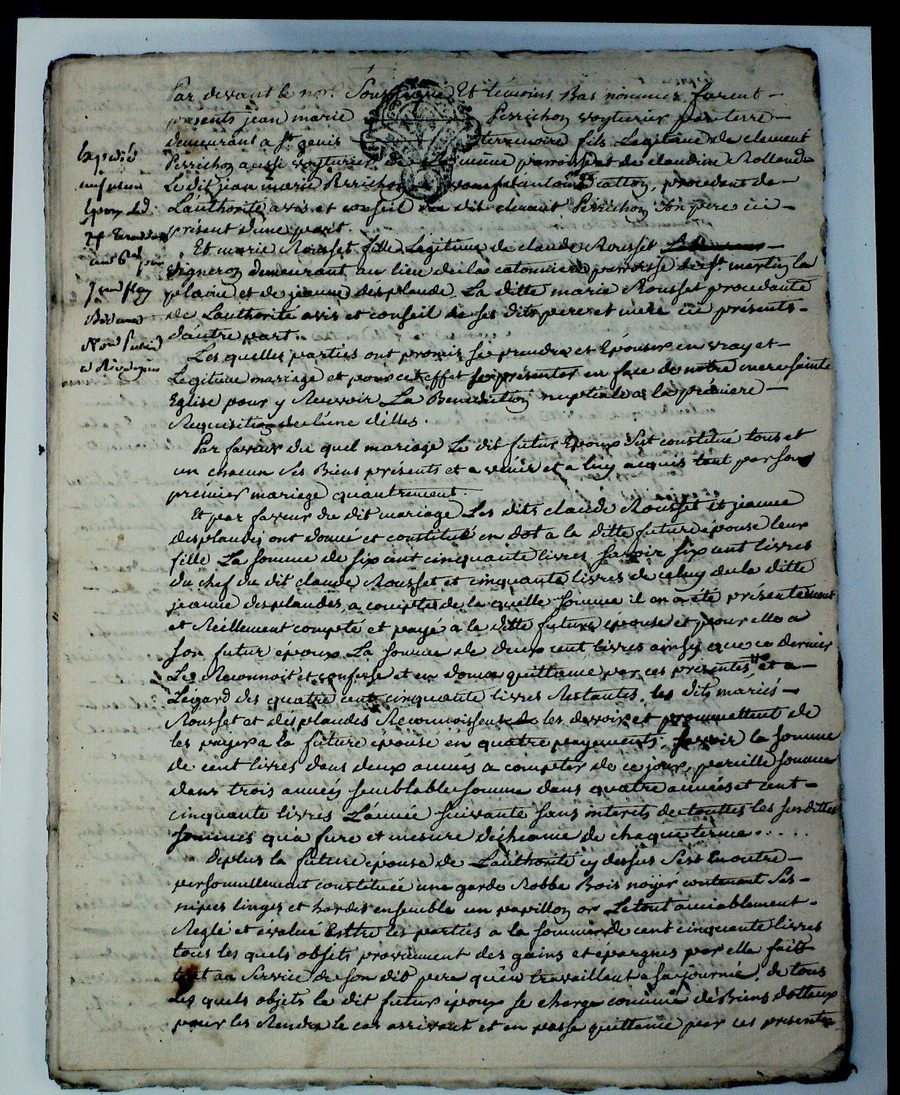 Par devant le no.re Soussigné Et témoins Bas nommés furent
présents jean marie Perrichon voyturier par terre
demeurant a St. genis terrenoire fils Legitime de clement
Perrichon aussi voyturier de la meme parroisse et de claudine Rolland
Le dit jean marie Perrichon procedant de
L'authorité avis et conseil du dit clemant Perrichon son pere ici
présent d'une part
Et marie Rousset fille Legitime de claude Rousset
vigneron demeurant au lieu de la catonniere parroisse de St. martin la
plaine et de jeanne desplande. La ditte marie Rousset procedante
de L'authorité avis et conseil de ses dits pere et mere ici présents
d'autre part.
Les quelles parties ont promis se prendre et Epouser en vray et
Legitime mariage et pour cet effet se présenter en face de notre mere sainte
Eglise pour y Recevoir La Benediction nuptiale a la premiere
Requisition de l'une d'elles.
Par faveur du quel mariage Le dit futur Epoux s'est constitué tous et
un chacun ses Biens présents et a venir et a luy acquis tant par son
premier mariage qu'autrement.
Et par faveur du dit mariage Les dits claude Rousset et jeanne
desplandes ont donné et constitué en dot a la ditte future épouse leur
fille La somme de six cent cinquante livres savoir six cent livres
du chef du dit claude Rousset et cinquante livres de celuy de la ditte
jeanne desplandes, a compte de la quelle somme il en a été présentement
et Réellement compté et payé a la ditte future épouse et pour elle a
son futur epoux La somme de deux cent livres ainsy que ce dernier
Le Reconnoit et confesse et en donne quittance par ces présentes, et a
L'égard des quatre cent cinquante livres Restantes, les dits mariés
Rousset et desplandes Reconnoissent les devoir et promettent de
les payer a la future épouse en quatre payements, savoir la somme
de cent livres dans deux années a compter de ce jour, pareille somme
dans trois années semblable somme dans quatre années et cent
cinquante livres L'année suivante sans interets de touttes les susdittes
sommes qu'a fure et mesure d'écheance de chaque terme.....
De plus la future épouse de L'authorité cy dessus s'est Enoutre
personnellement constituée une garde Robbe Bois noyer contenant ses
nipes linges et hardes ensemble un papillon or Le tout amiablement
Reglé et evalué Entre les parties a la somme de cent cinquante livres
tous les quels objets proviennent des gains et épargnes par elle faits
tant au service de son dit pere qu'en travaillant a sa journée, de tous
les quels objets le dit futur époux se charge comme de Biens dottaux
pour les Rendre le cas arrivant et en passe quittance par ces présentes